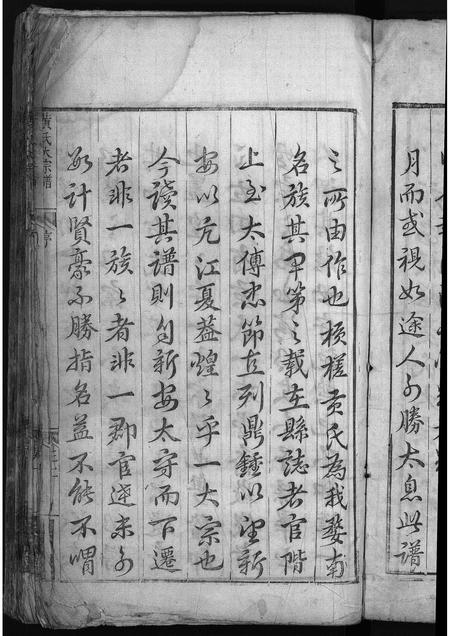 月而或視如途人可勝太息此譜
之所由作也槙槎黄氏為我婺南
名族其甲第之載在縣誌者官階
上至太傅忠節直列鼎鍾以望新
安以亢江夏蓋煌之乎一大宗也
今讀其譜則自新安太守而下遷
者非一族之者非一郡官迹未可
數計賢豪不勝指名益不能不喟
黄氏大宗譜